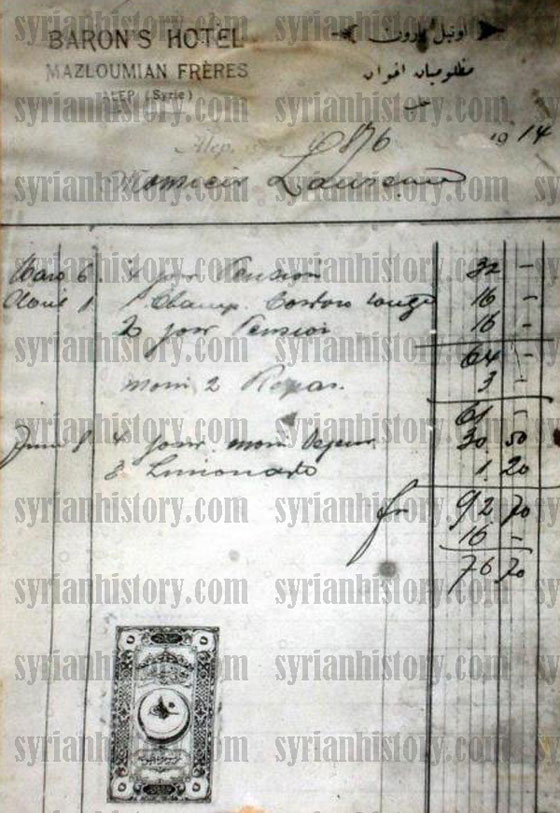 BARON'S HOTEL
MAZLOUMIAN FRÈRES
ALEP (Syrie)
اوتيل بارون
مظلوميان اخوان
حلب
Alep, 1914
Monsieur Laurence
Mars 6 4 jour Pension 32 —
Avril 1 1 Champ. Cordon rouge 16 —
2 jour Pension 16 —
64 —
moin 2 Repas. 3 —
61 —
Juin 8 4 jour. moin Dejeun. 30 50
3 Limonade 1. 20
fr 92 70
16 —
76 70
syrianhistory.com